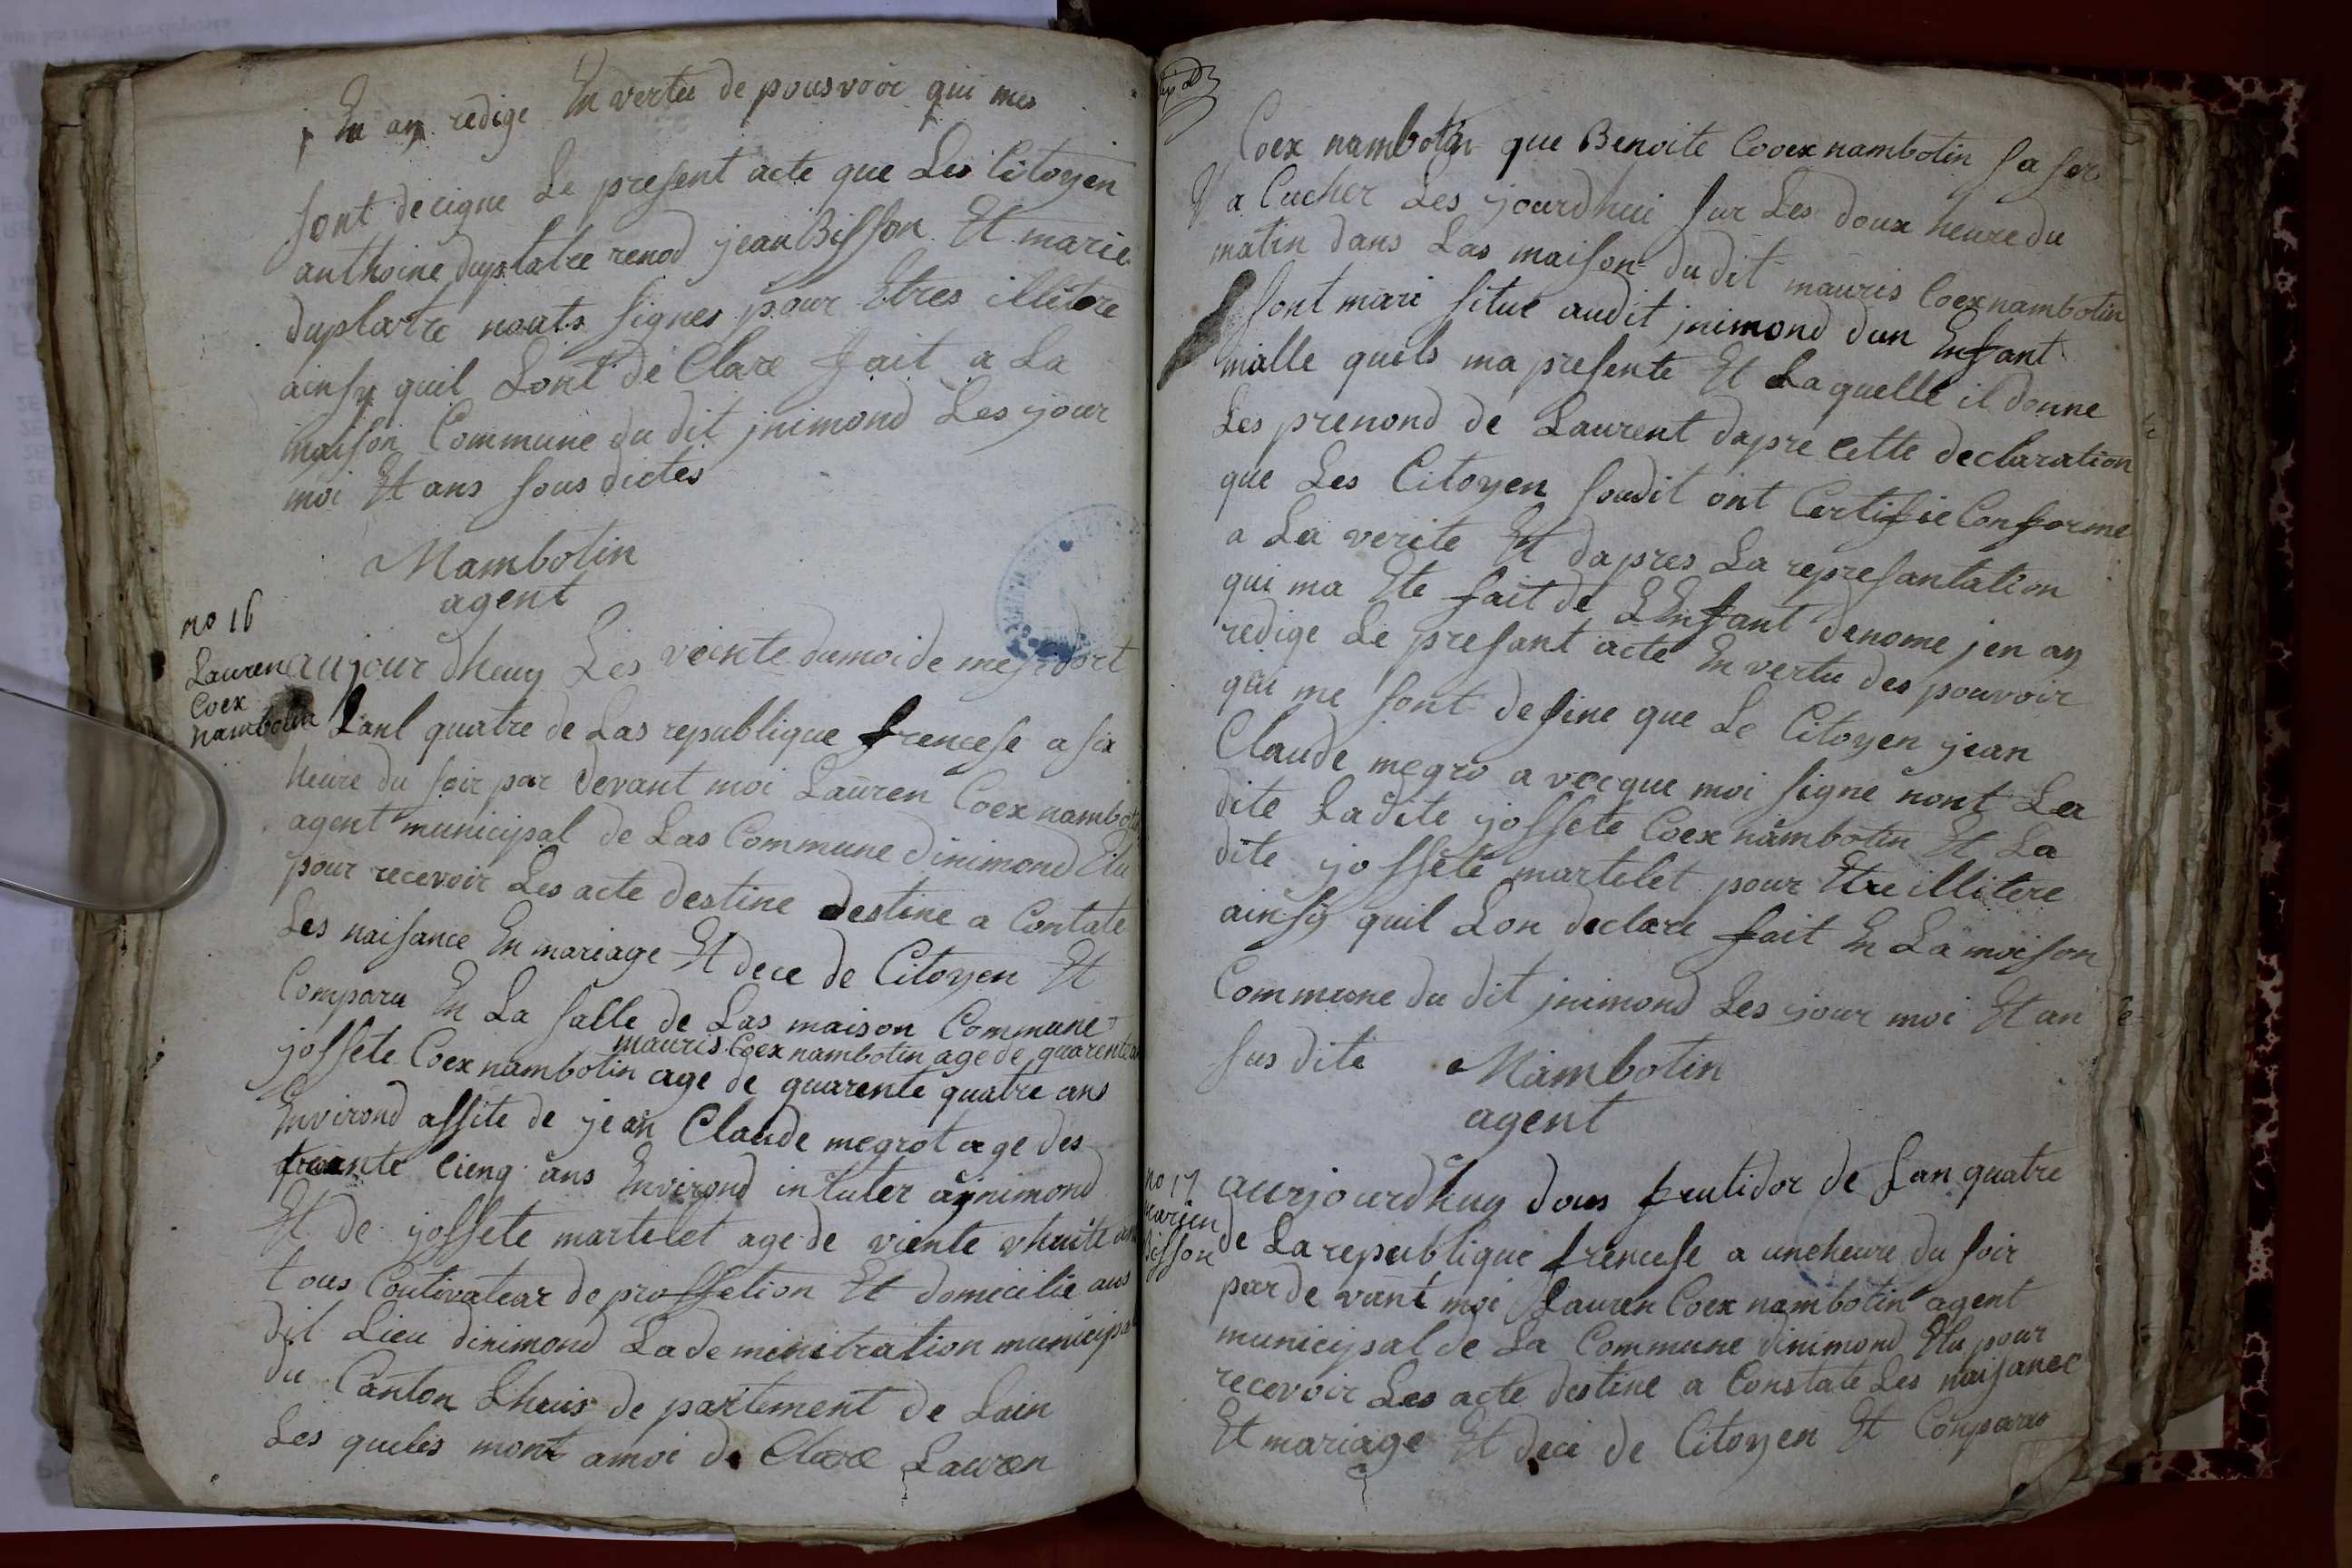 En ay redige En vertu de pousvoir qui mes
sont decigne Le present acte que Les Citoyen
anthoine duplatre renod jean Bisson Et marie
duplatre nonts signes pour Etres illitere
ainsy quil Lont de Clare fait a La
maison Commune du dit jnimond Les jour
moi Et ans sous dictes
Mambotin
agent
no 16
Lauren
Coex
nambotin
aujour dheuy Les veinte du moi de mesidort
Lanl quatre de Las republique francese a six
heure du soir par devant moi Lauren Coex nambotin
agent municipal de Las Commune dinimond Elu
pour recevoir Les acte destine destine a Contate
Les naisance En mariage Et dece de Citoyen Et
Comparu En La salle de Las maison Commune
mauris Coex nambotin age de quarente
jossete Coex nambotin age de quarente quatre ans
Environd assite de jean Claude megrot age des
trante cienq ans Environd in tuter a jnimond
Et de jossete martelet age de viente vhuite ans
tous Coutivatear de proffetion Et domicilie aus
dit Lieu dinimond Lademinitration municipal
du Canton Lhuis de partement de Lain
Les quelis mont amoi de Clare Lauren
Coex nambotin que Benoite Cooex nambotin sa ser
a Cucher Les jourdhui sur Les doux heure du
matin dans Las maison du dit mauris Coex nambotin
sont mari situe audit jnimond dun Enfant
malle quels ma presente Et Laquelle il donne
Les prenond de Laurent dapre cette declaration
que Les Citoyen soudit ont Certifie Conforme
a La verite Et dapres La represantation
qui ma Ete fait de LEnfant denome jen ay
redige Le presant acte En vertu des pouvoir
qui me sont define que Le Citoyen jean
Claude megro a vecque moi signe nont La
dite Ladite jossete Coex nambotin Et La
dite jossete martelet pour Etre illitere
ainsy quil Lon declare fait En La maison
Commune du dit jnimond Les jour moi Et an
sus dite
Mambotin
agent
no 17
marien
Bisson
aurjourdhuy dous frutidor de Lan quatre
de La republique francese a une heure du soir
par de vant moi Lauren Coex nambotin agent
municipal de La Commune dinimond Elu pour
recevoir Les acte destine a Constate Les naisance
Et mariage Et dece de Citoyen Et Conparu